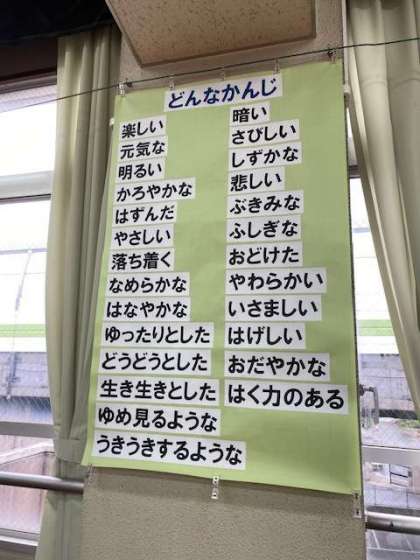 どんなかんじ
楽しい
元気な
明るい
かろやかな
はずんだ
やさしい
落ち着く
なめらかな
はなやかな
ゆったりとした
どうどうとした
生き生きとした
ゆめ見るような
うきうきするような
暗い
さびしい
しずかな
悲しい
ぶきみな
ふしぎな
おどけた
やわらかい
いさましい
はげしい
おだやかな
はく力のある